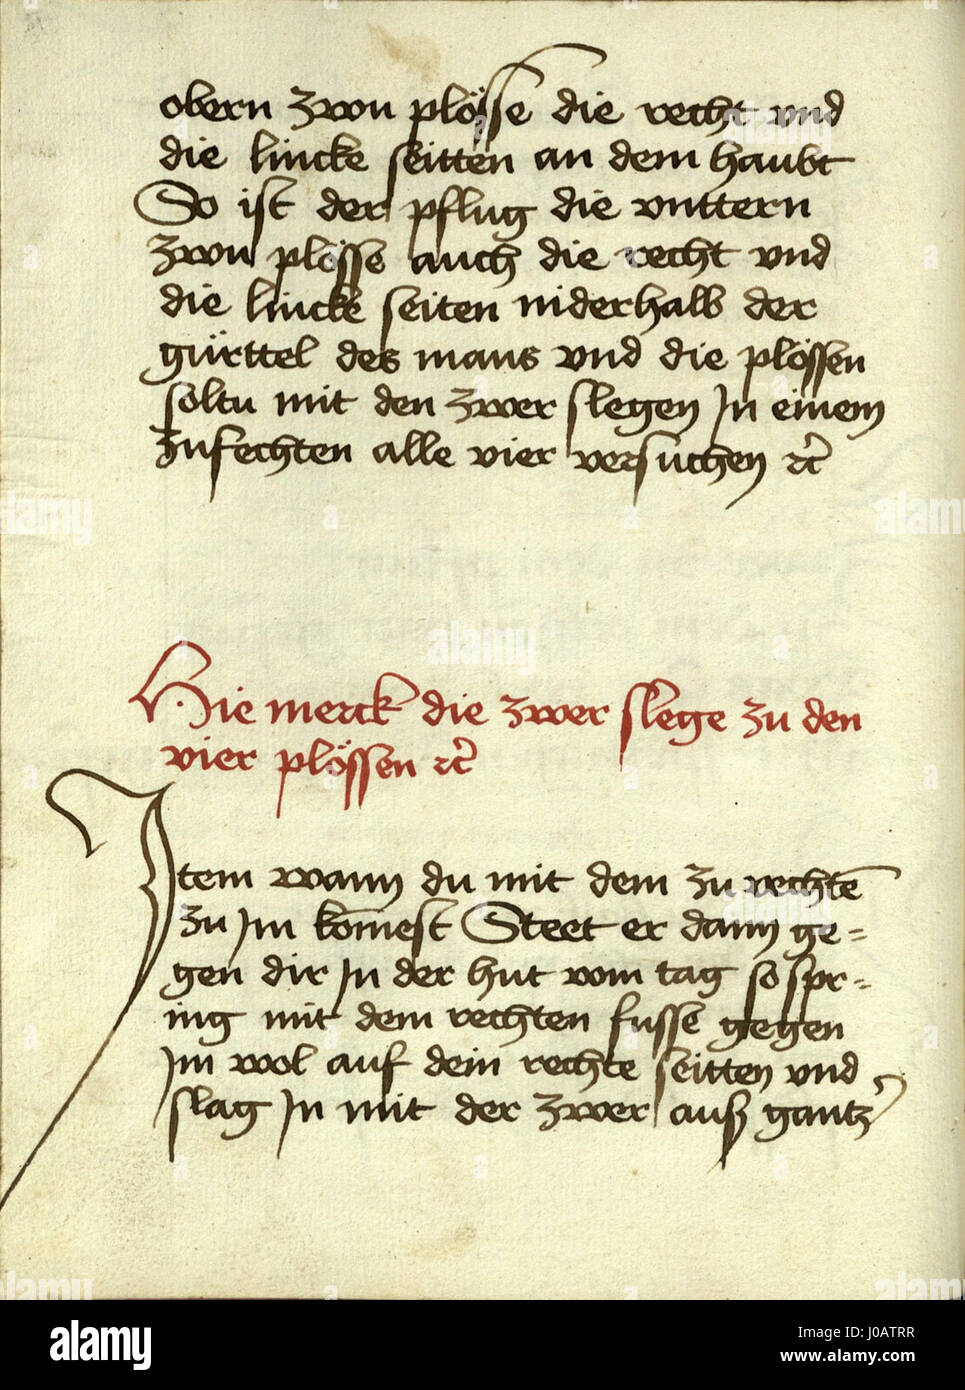 obern zwou plösse die recht vnd
die lincke seitten an dem haubt
So ist der pflug die vnttern
zwou plösse auch die recht vnd
die lincke seiten niderhalb der
gürttel des mans vnd die plössen
soltu mit den zwer slegen Jn einem
zufechten alle vier versuchen rc̄
Hie merck die zwer slege zu den
vier plössen rc̄
Jtem wann du mit dem zu vechtē
zu Jm komest Steet er dann ge=
gen dir Jn der hut vom tag so spr=
ing mit dem rechten fusse gegen
Jm wol auf dein rechte seitten vnd
slag Jn mit der zwer auß gantz'
alamy
Image ID: J0ATRR
www.alamy.com